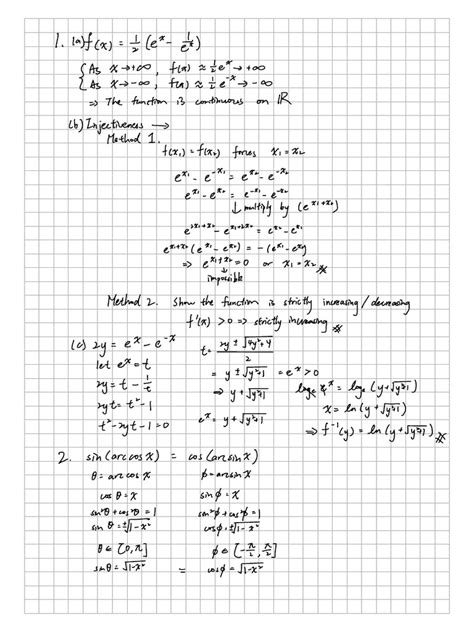 1. (a) f(x) = 1/2 (e^x - 1/e^x)
{ As x → +∞, f(x) ≈ 1/2 e^x → +∞
{ As x → -∞, f(x) ≈ 1/2 e^-x → -∞
⇒ The function is continuous on ℝ
(b) Injectiveness →
Method 1.
f(x₁) = f(x₂) forces x₁ = x₂
e^x₁ - e^-x₁ = e^x₂ - e^-x₂
e^x₁ - e^x₂ = e^-x₁ - e^-x₂
↓ multiply by (e^(x₁+x₂))
e^(2x₁+x₂) - e^(x₁+2x₂) = e^x₂ - e^x₁
e^(x₁+x₂) (e^x₁ - e^x₂) = -(e^x₁ - e^x₂)
⇒ e^(x₁+x₂) = 0 or x₁ = x₂
↓
impossible
Method 2. Show the function is strictly increasing / decreasing
f'(x) > 0 ⇒ strictly increasing
(c) 2y = e^x - e^-x
let e^x = t
2y = t - 1/t
2yt = t² - 1
t² - 2yt - 1 = 0
t = (2y ± √(4y²+4))/2
= y ± √(y²+1) = e^x > 0
⇒ y + √(y²+1)
e^x = y + √(y²+1)
logₑ e^x = logₑ (y + √(y²+1))
x = ln (y + √(y²+1))
⇒ f⁻¹(y) = ln (y + √(y²+1))
2. sin(arccos x) = cos(arcsin x)
θ = arccos x ϕ = arcsin x
cos θ = x sin ϕ = x
sin²θ + cos²θ = 1 sin²ϕ + cos²ϕ = 1
sin θ = ±√(1-x²) cos ϕ = ±√(1-x²)
θ ∈ [0, π] ϕ ∈ [-π/2, π/2]
sin θ = √(1-x²) = cos ϕ = √(1-x²)